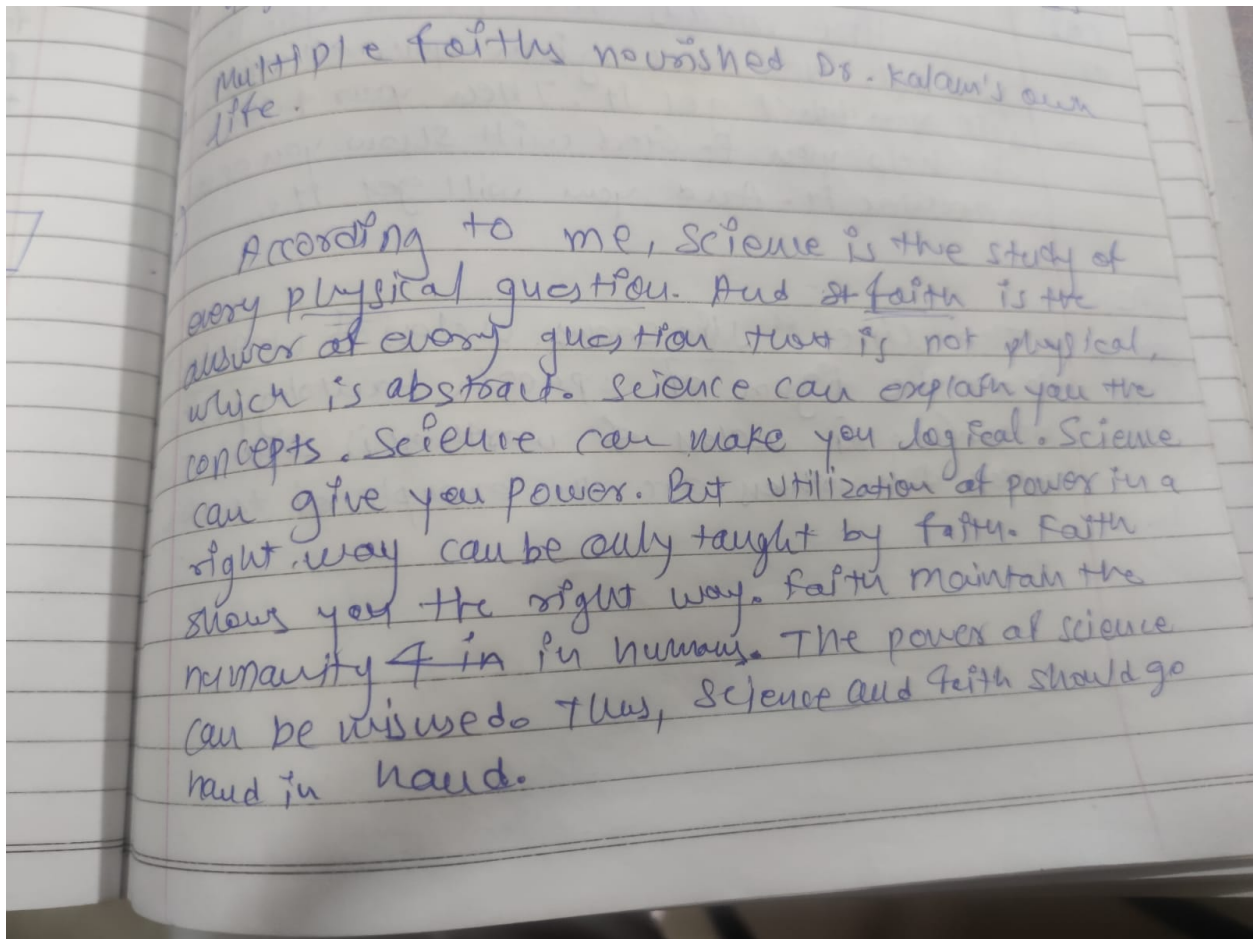 Multiple faiths nourished Dr. Kalam's own
life.
According to me, science is the study of
every physical question. And faith is the
answer of every question that is not physical,
which is abstract. Science can explain you the
concepts. Science can make you logical. Science
can give you power. But utilization of power in a
right way can be only taught by faith. Faith
shows you the right way. Faith maintain the
humanity in humans. The power of science
can be misused. Thus, science and faith should go
hand in hand.